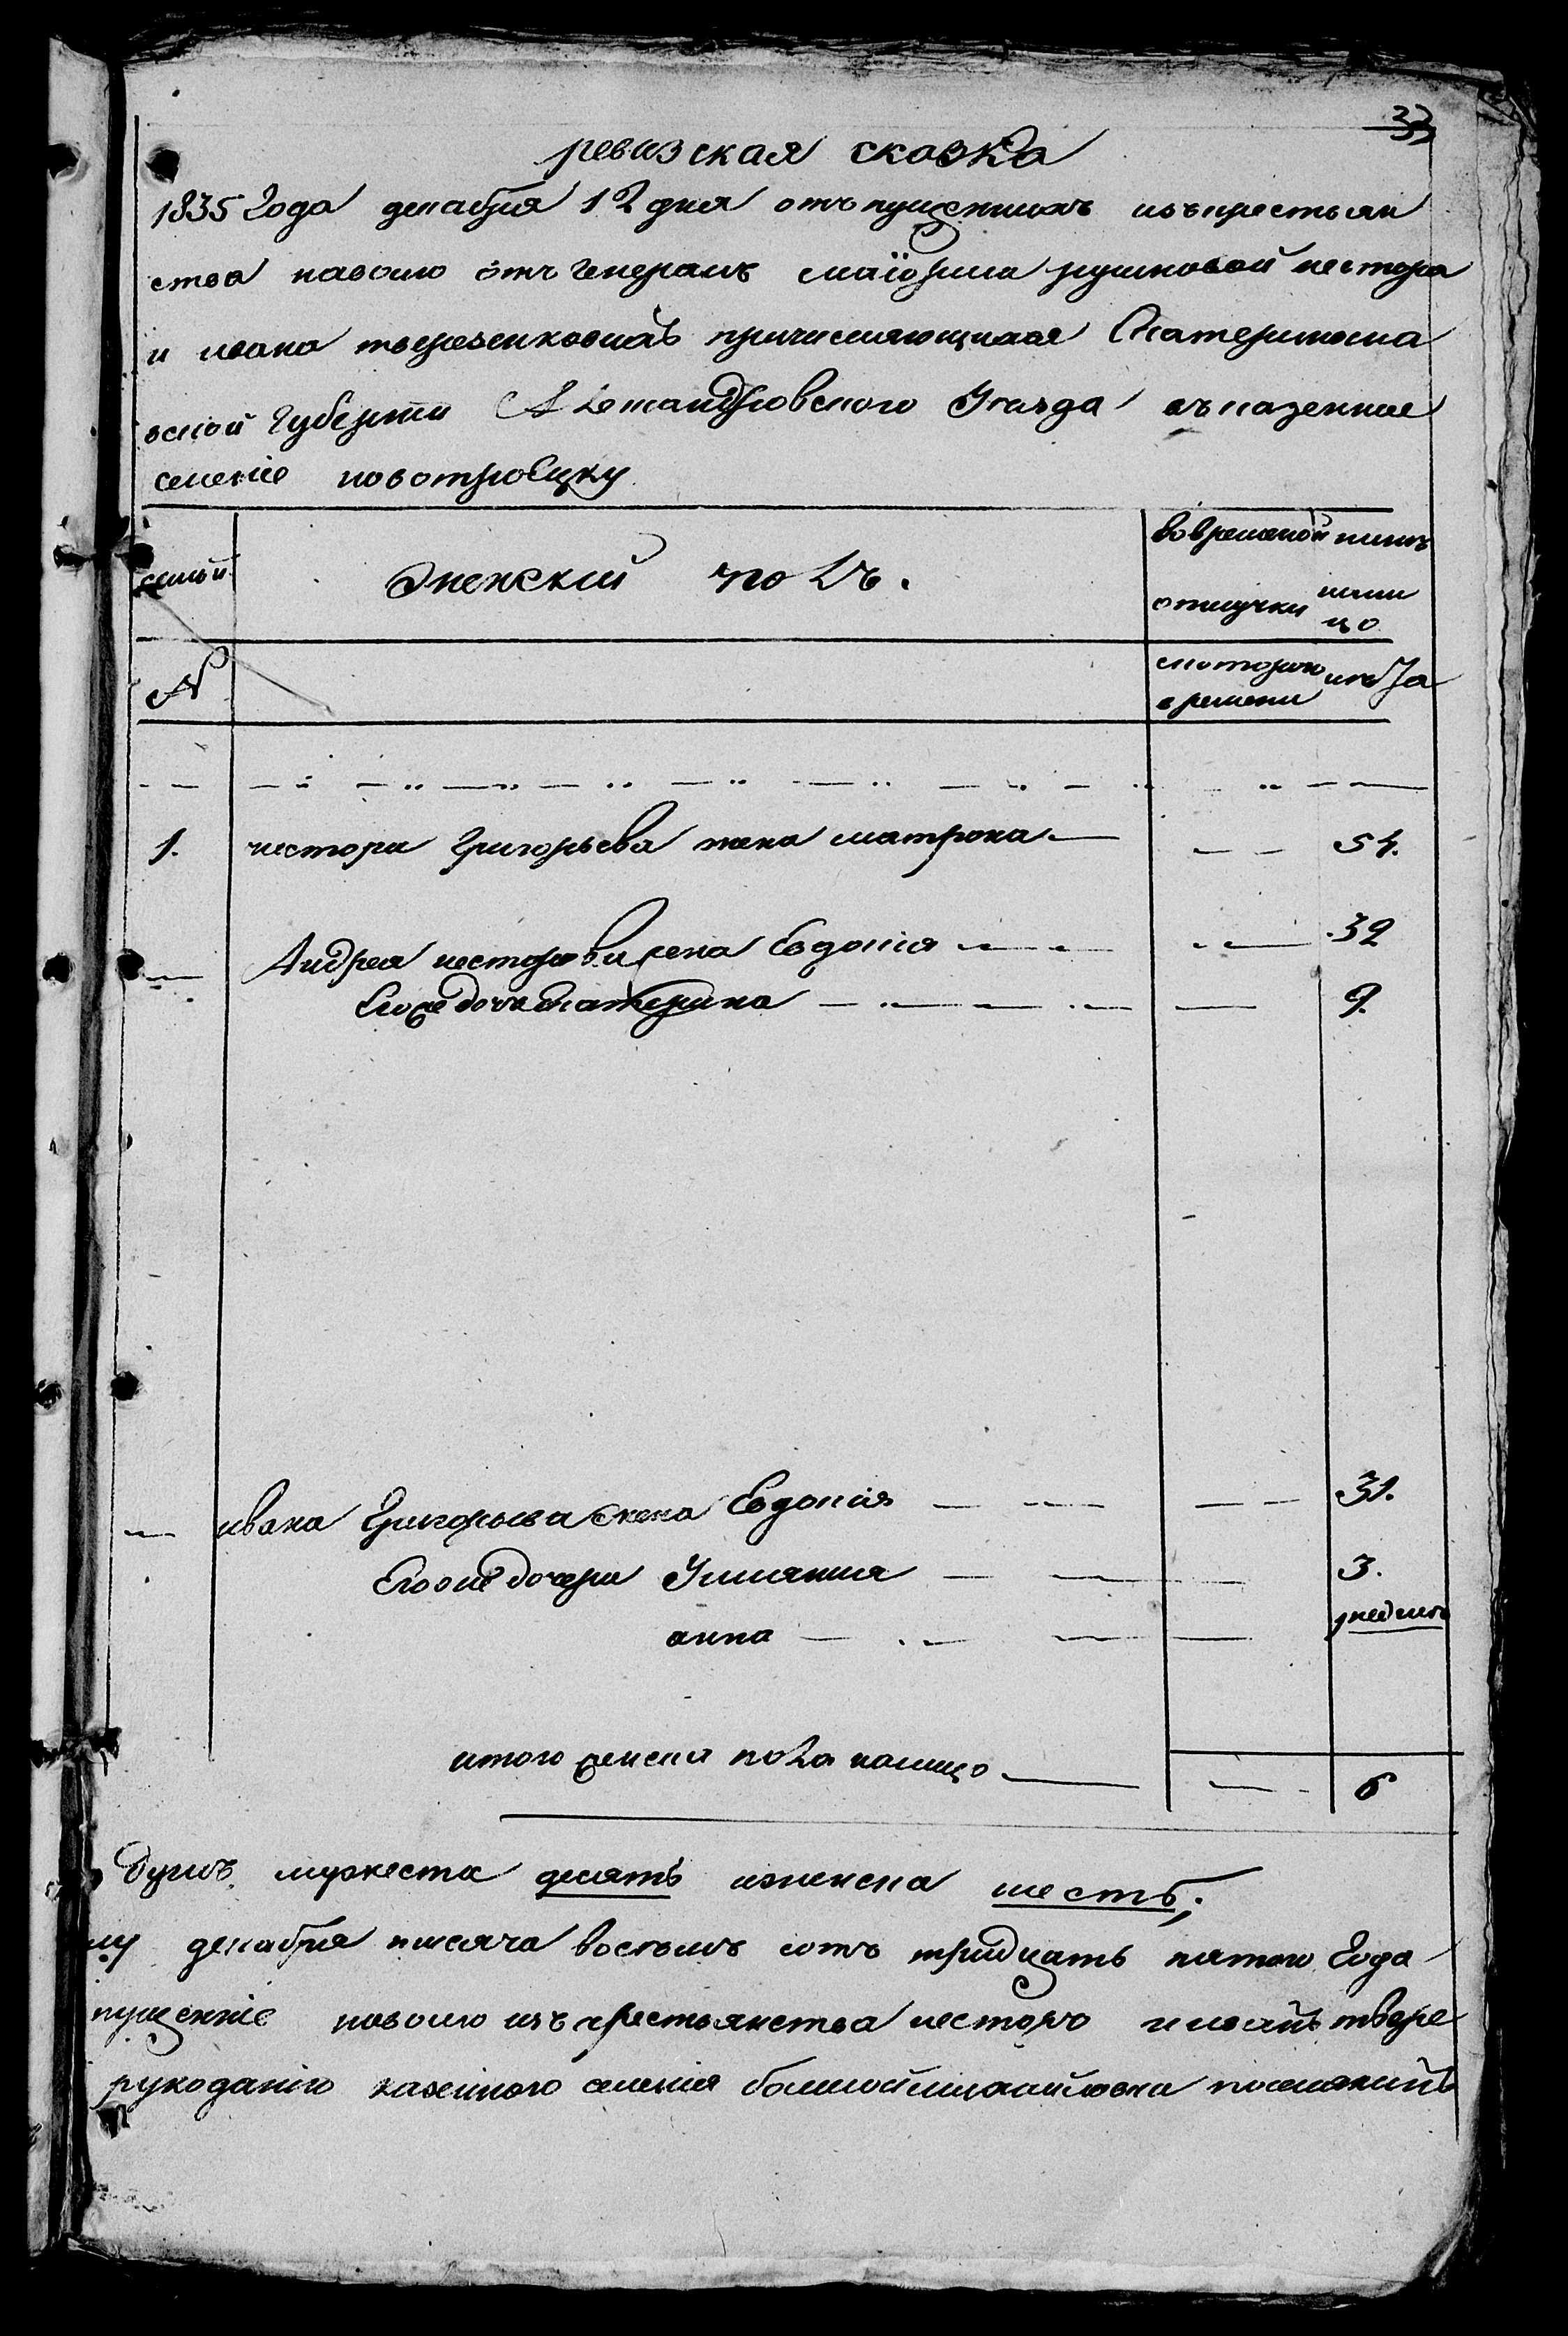 33
ревизская сказка
1835 Года декабря 12 дня отъпущенныхъ изъкрестьян
ства наволю отъ Генералъ маіорши рушковой нестора
и ивана тверезенковыхъ причисляющихся Екатеринослав
вской Губерніи Александровского Уѣзда въказенное
селеніе новотроецку
семьи женский полъ. вовременой нынѣ
отлучки нали
цо
№ скоторого лѣта
времени
1. нестора Григорьева жена матрона 54.
Андрея несторова жена Евдокия 32
Егоже дочь екатерина 9.
ивана Григорьева жена Евдокия 31.
Егоже дочери Ульяния 3.
анна недель
итого женска пола налицо 6
душъ мужеска десять иженска шесть;
му декабря тысяча восемь сотъ тридцать пятого Года
пущеніе наволю изъкрестьянства несторъ ииванъ твере
рукоданію казенного селения болшоймихайловки поселянинъ